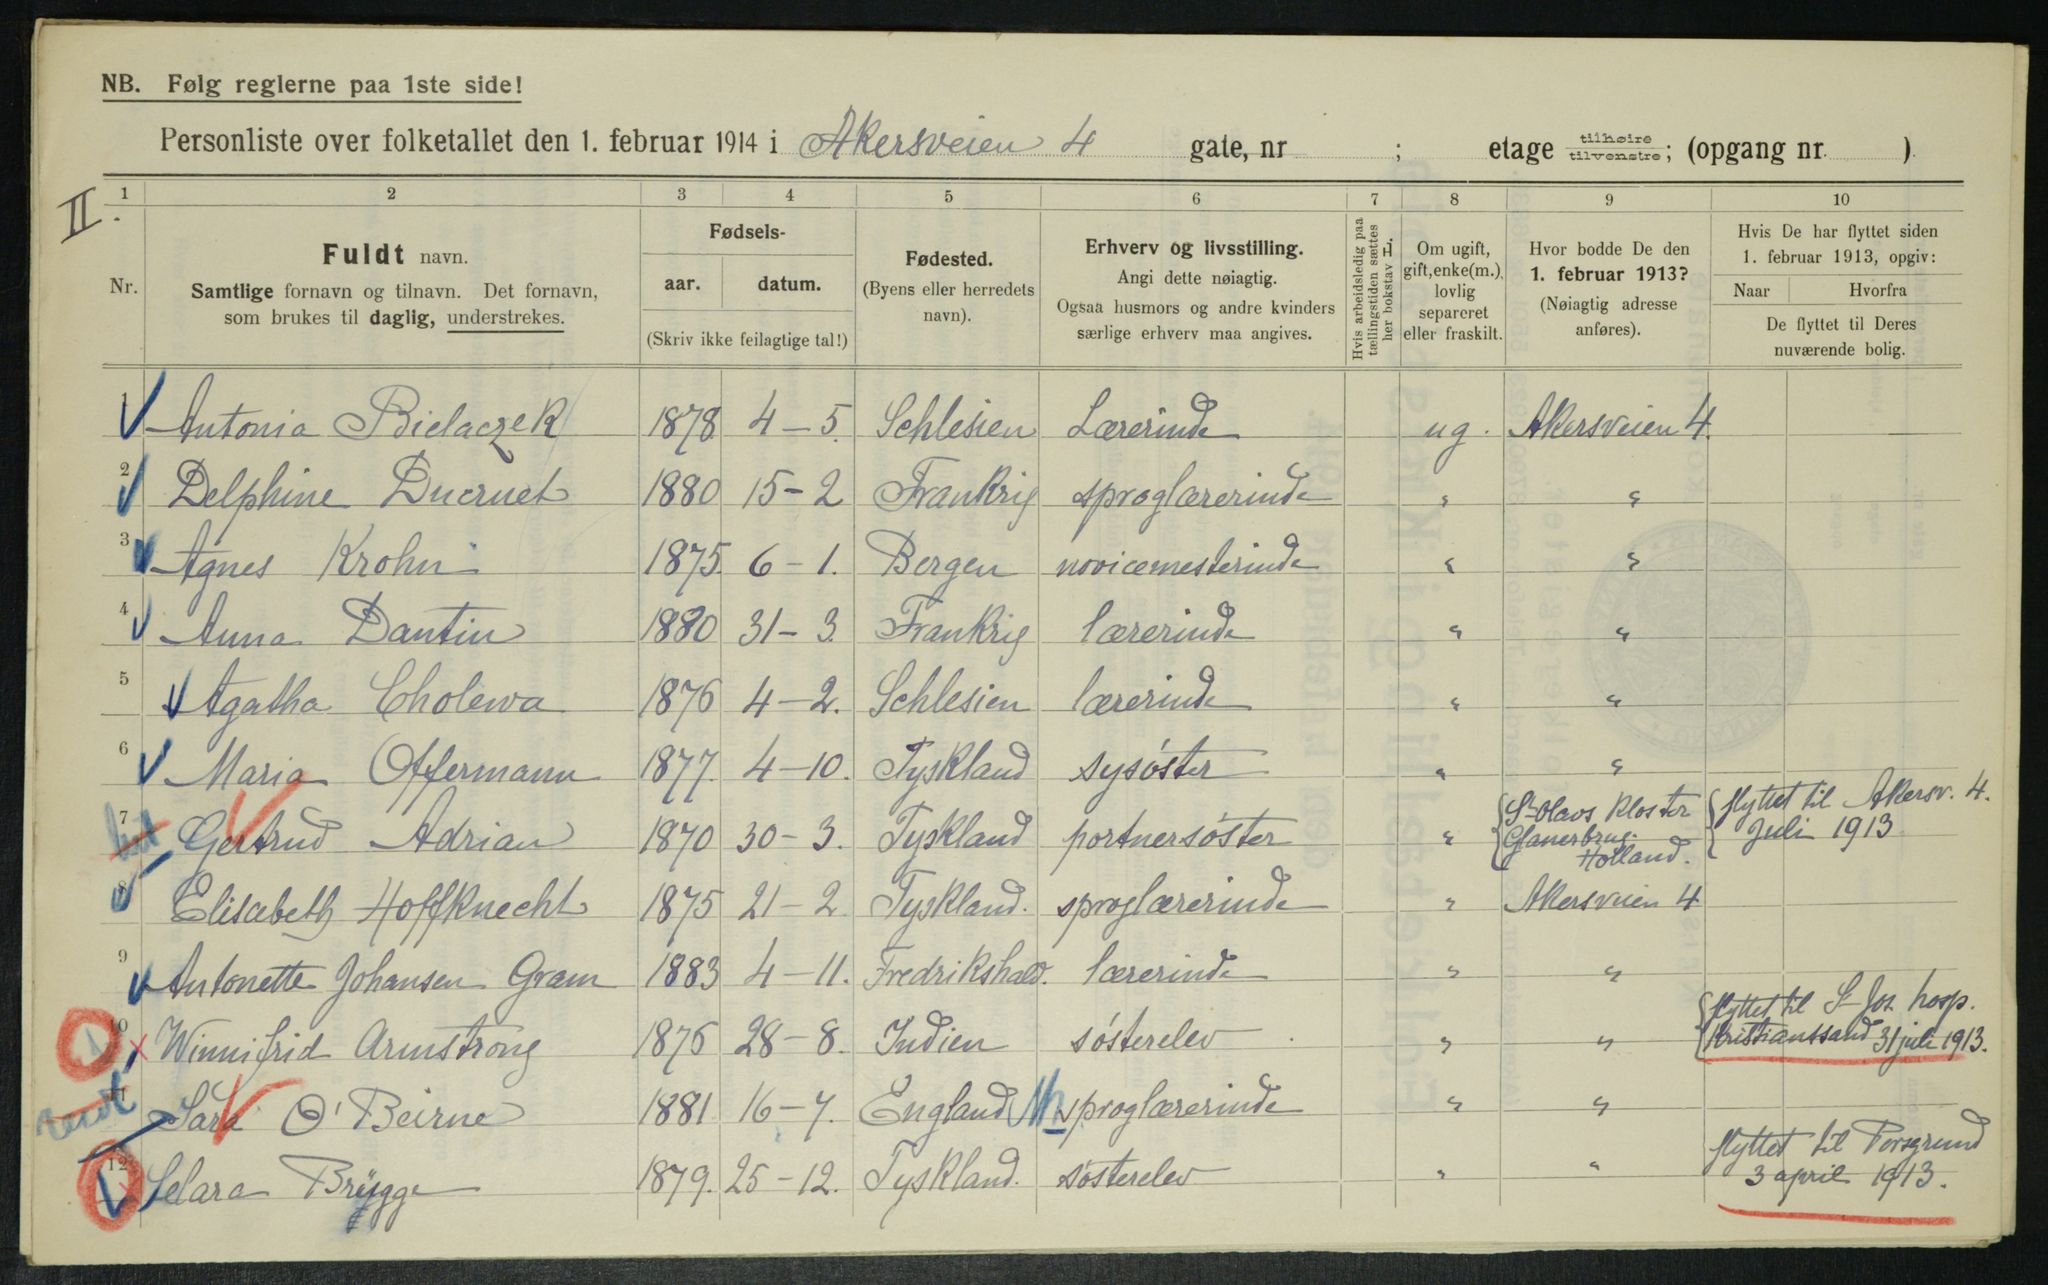 NB. Følg reglerne paa 1ste side!
Personliste over folketallet den 1. februar 1914 i Akersveien 4 gate, nr ; etage tilhøire tilvenstre; (opgang nr. ).
II.
1 2 3 4 5 6 7 8 9 10
Nr.
Fuldt navn.
Samtlige fornavn og tilnavn. Det fornavn,
som brukes til daglig, understrekes.
Fødsels-
aar. datum.
(Skriv ikke feilagtige tal!)
Fødested.
(Byens eller herredets
navn).
Erhverv og livsstilling.
Angi dette nøiagtig.
Ogsaa husmors og andre kvinders
særlige erhverv maa angives.
Hvis arbeidsledig paa
tællingstiden sættes
her bokstav L.
Om ugift,
gift, enke(m.),
lovlig
separeret
eller fraskilt.
Hvor bodde De den
1. februar 1913?
(Nøiagtig adresse
anføres).
Hvis De har flyttet siden
1. februar 1913, opgiv:
Naar Hvorfra
De flyttet til Deres
nuværende bolig.
1 Antonia Bielaczek 1878 4-5. Schlesien Lærerinde ug. Akersveien 4.
2 Delphine Ducruet 1880 15-2 Frankrig sproglærerinde " "
3 Agnes Krohn 1875 6-1. Bergen novicemesterinde " "
4 Anna Dantin 1880 31-3. Frankrig lærerinde " "
5 Agatha Cholewa 1876 4-2. Schlesien lærerinde " "
6 Maria Offermann 1877. 4-10. Tyskland sysöster " "
7 Gertrud Adrian 1870 30-3. Tyskland portnersöster " St Olavs Kloster
Glanerbrug.
Holland.
flyttet til Akersv. 4.
Juli 1913
8 Elisabeth Hoffknecht 1875 21-2 Tyskland. sproglærerinde " Akersveien 4
9 Antonette Johansen Gram 1883 4-11. Fredrikshald. lærerinde " "
10 Winnifrid Armstrong 1876 28-8. Indien søsterelev " "
flyttet til St Jos. hosp.
Kristianssand 31 juli 1913.
11 Sara O'Beirne 1881. 16-7. England sproglærerinde " "
12 Selara Brÿgge 1879. 25-12. Tyskland. søsterelev " "
flyttet til Porsgrund
3 april 1913.